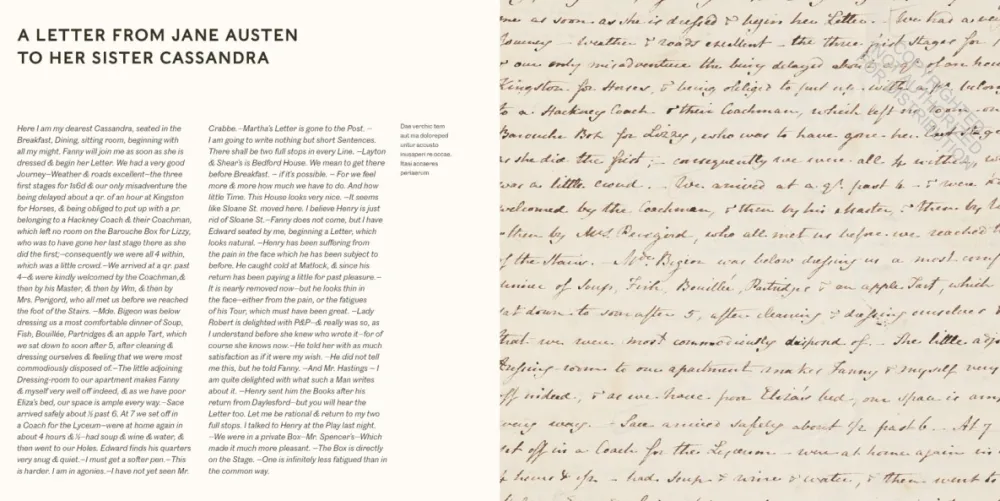 A LETTER FROM JANE AUSTEN
TO HER SISTER CASSANDRA
Here I am my dearest Cassandra, seated in the
Breakfast, Dining, sitting room, beginning with
all my might. Fanny will join me as soon as she is
dressed & begin her Letter. We had a very good
Journey–Weather & roads excellent–the three
first stages for 1s6d & our only misadventure the
being delayed about a qr. of an hour at Kingston
for Horses, & being obliged to put up with a pr.
belonging to a Hackney Coach & their Coachman,
which left no room on the Barouche Box for Lizzy,
who was to have gone her last stage there as she
did the first;–consequently we were all 4 within,
which was a little crowd.–We arrived at a qr. past
4–& were kindly welcomed by the Coachman,&
then by his Master, & then by Wm, & then by
Mrs. Perigord, who all met us before we reached
the foot of the Stairs. –Mde. Bigeon was below
dressing us a most comfortable dinner of Soup,
Fish, Bouillée, Partridges & an apple Tart, which
we sat down to soon after 5, after cleaning &
dressing ourselves & feeling that we were most
commodiously disposed of.–The little adjoining
Dressing-room to our apartment makes Fanny
& myself very well off indeed, & as we have poor
Eliza's bed, our space is ample every way. –Sace
arrived safely about ½ past 6. At 7 we set off in
a Coach for the Lyceum–were at home again in
about 4 hours & ½–had soup & wine & water, &
then went to our Holes. Edward finds his quarters
very snug & quiet.–I must get a softer pen.–This
is harder. I am in agonies.–I have not yet seen Mr.
Crabbe.–Martha's Letter is gone to the Post. –
I am going to write nothing but short Sentences.
There shall be two full stops in every Line. –Layton
& Shear's is Bedford House. We mean to get there
before Breakfast. – if it's possible. – For we feel
more & more how much we have to do. And how
little Time. This House looks very nice. –It seems
like Sloane St. moved here. I believe Henry is just
rid of Sloane St.–Fanny does not come, but I have
Edward seated by me, beginning a Letter, which
looks natural. –Henry has been suffering from
the pain in the face which he has been subject to
before. He caught cold at Matlock, & since his
return has been paying a little for past pleasure.–
It is nearly removed now–but he looks thin in
the face–either from the pain, or the fatigues
of his Tour, which must have been great. –Lady
Robert is delighted with P&P–& really was so, as
I understand before she knew who wrote it–for of
course she knows now.–He told her with as much
satisfaction as if it were my wish. –He did not tell
me this, but he told Fanny. –And Mr. Hastings – I
am quite delighted with what such a Man writes
about it. –Henry sent him the Books after his
return from Daylesford–but you will hear the
Letter too. Let me be rational & return to my two
full stops. I talked to Henry at the Play last night.
–We were in a private Box–Mr. Spencer's–Which
made it much more pleasant. –The Box is directly
on the Stage. –One is infinitely less fatigued than in
the common way.
me as soon as she is dressed & begin her Letter. We had a
Journey – Weather & roads excellent – the three first stages for
& our only misadventure the being delayed about a qr. of an hour
Kingston for Horses, & being obliged to put up with a pr.
to a Hackney Coach & their Coachman, which left no room on
Barouche Box for Lizzy, who was to have gone her last stage
as she did the first; – consequently we were all 4 within,
was a little crowd. – We arrived at a qr. past 4 – & were
welcomed by the Coachman, & then by his Master, & then by
then by Mrs. Perigord, who all met us before we reached
of the Stairs. – Mde. Bigeon was below dressing us a most
dinner of Soup, Fish, Bouillée, Partridges & an apple Tart, which
sat down to soon after 5, after cleaning & dressing ourselves &
that we were most commodiously disposed of. – The little
Dressing-room to our apartment makes Fanny & myself very
off indeed, & as we have poor Eliza's bed, our space is
every way. – Sace arrived safely about 1/2 past 6. At 7
set off in a Coach for the Lyceum – were at home again in
4 hours & 1/2 – had soup & wine & water, & then went to